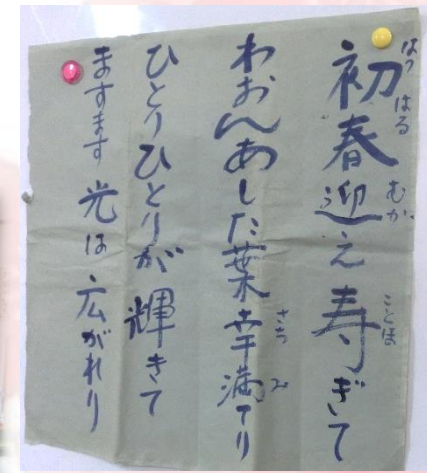 初春迎え寿ぎて
はつはる むか ことほ
わおんあした葉幸満てり
さち み
ひとりひとりが輝きて
ますます光は広がれり